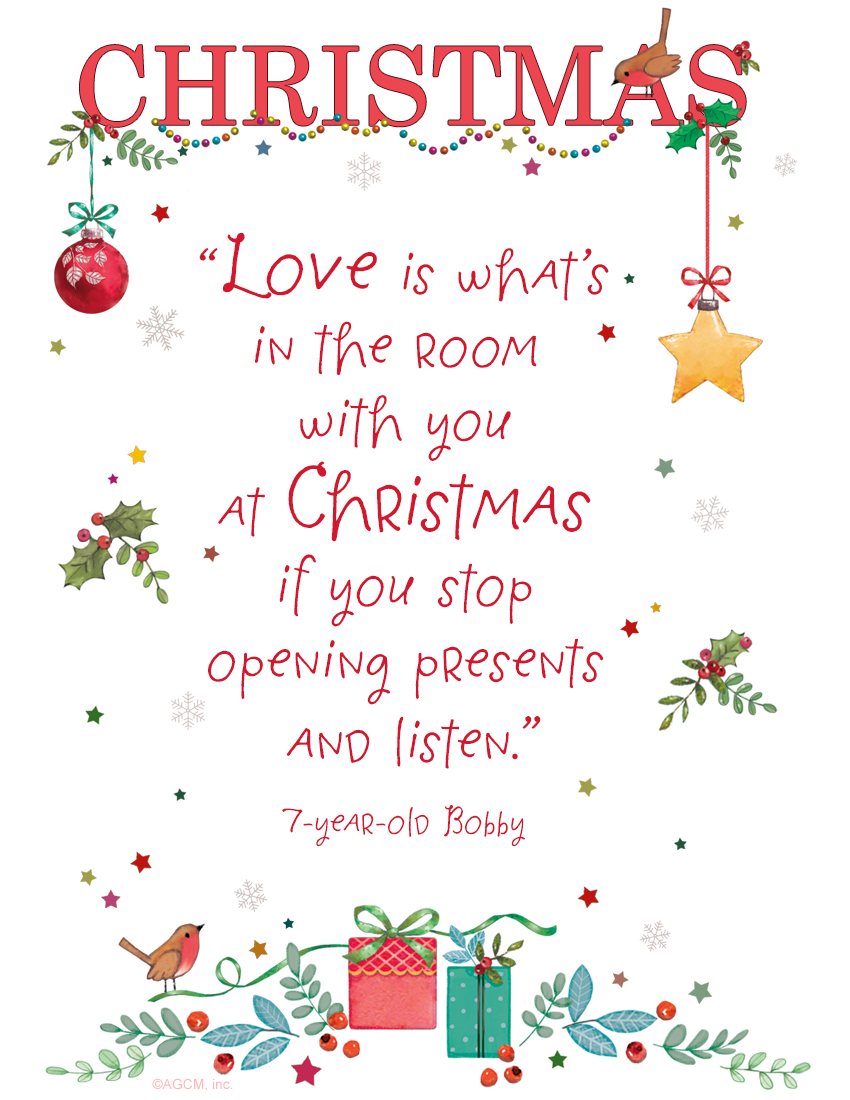 CHRISTMAS
“Love is what’s
in the room
with you
at Christmas
if you stop
opening presents
and listen.”
7-year-old Bobby
©AGCM, inc.